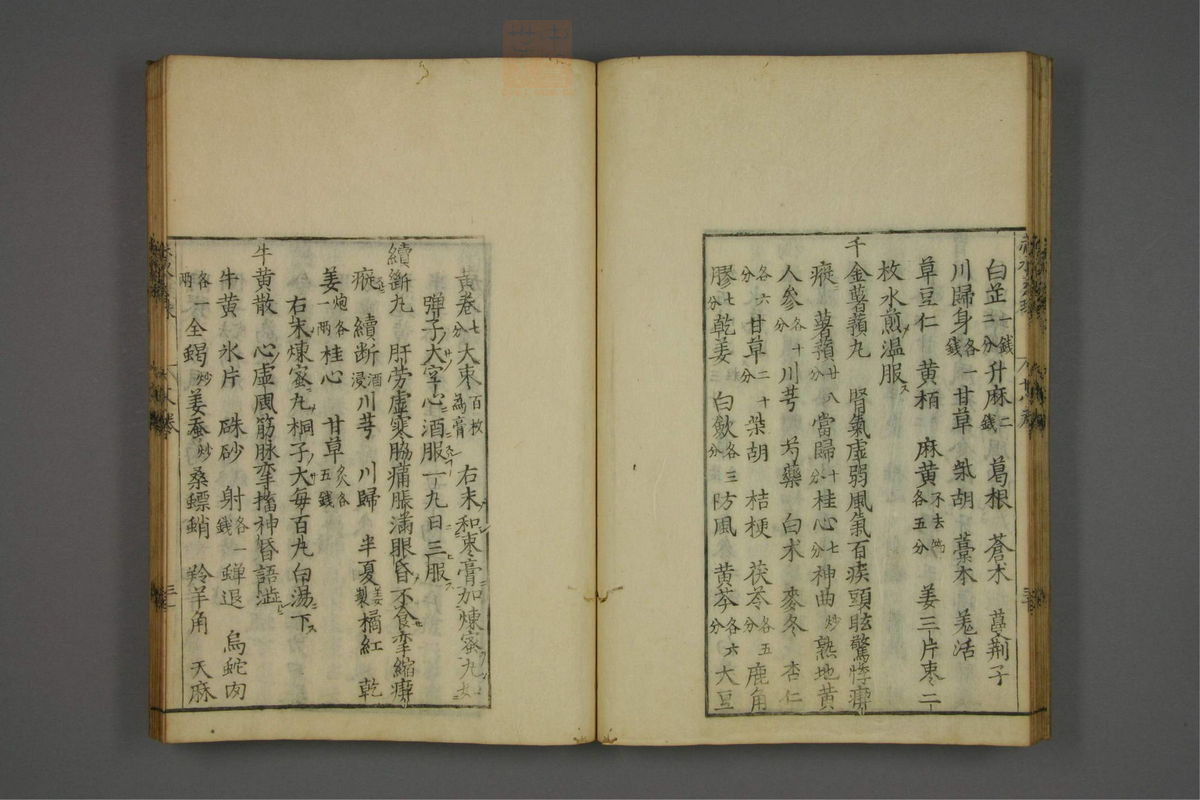 白芷一錢二分升麻二錢 葛根 蒼朮 蔓荊子
川歸身各一錢甘草 柴胡 藁本 羌活
草豆仁 黃栢 麻黃不去節各五分 姜三片棗二
枚水煎溫服ス
千金薯蕷丸 腎氣虛弱風氣百疾頭眩驚悸癇
癡 薯蕷廿八分當歸十分桂心七分神曲炒熟地黃
人參各十分川芎 芍藥 白朮 麥冬 杏仁
各六分甘草二十分柴胡 桔梗 茯苓各五分鹿角
膠七分乾姜三 白斂各三分防風 黃芩各六分大豆
黃卷七分大棗百枚為膏 右末和棗膏加煉蜜丸如
彈子大空心酒服一丸日三服
續斷丸 肝勞虛寒脇痛脹滿眼昏不食攣縮癇
瘲 續斷酒浸川芎 川歸 半夏姜製橘紅 乾
姜炮各一兩桂心 甘草炙各五錢
右末煉蜜丸桐子大每百丸白湯下ス
牛黃散 心虛風筋脉攣搐神昏語澁
牛黃 氷片 硃砂 射各一錢蟬退 烏蛇肉
各一兩全蝎炒姜蚕炒桑螵蛸 羚羊角 天麻